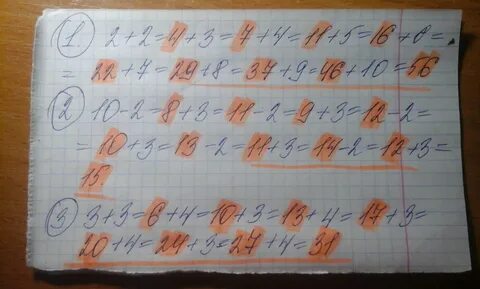 1. 2+2=4+3=7+4=11+5=16+6=
=22+7=29+8=37+9=46+10=56
2 10-2=8+3=11-2=9+3=12-2=
=10+3=13-2=11+3=14-2=12+3=
15
3 3+3=6+4=10+3=13+4=17+3=
20+4=24+3=27+4=31